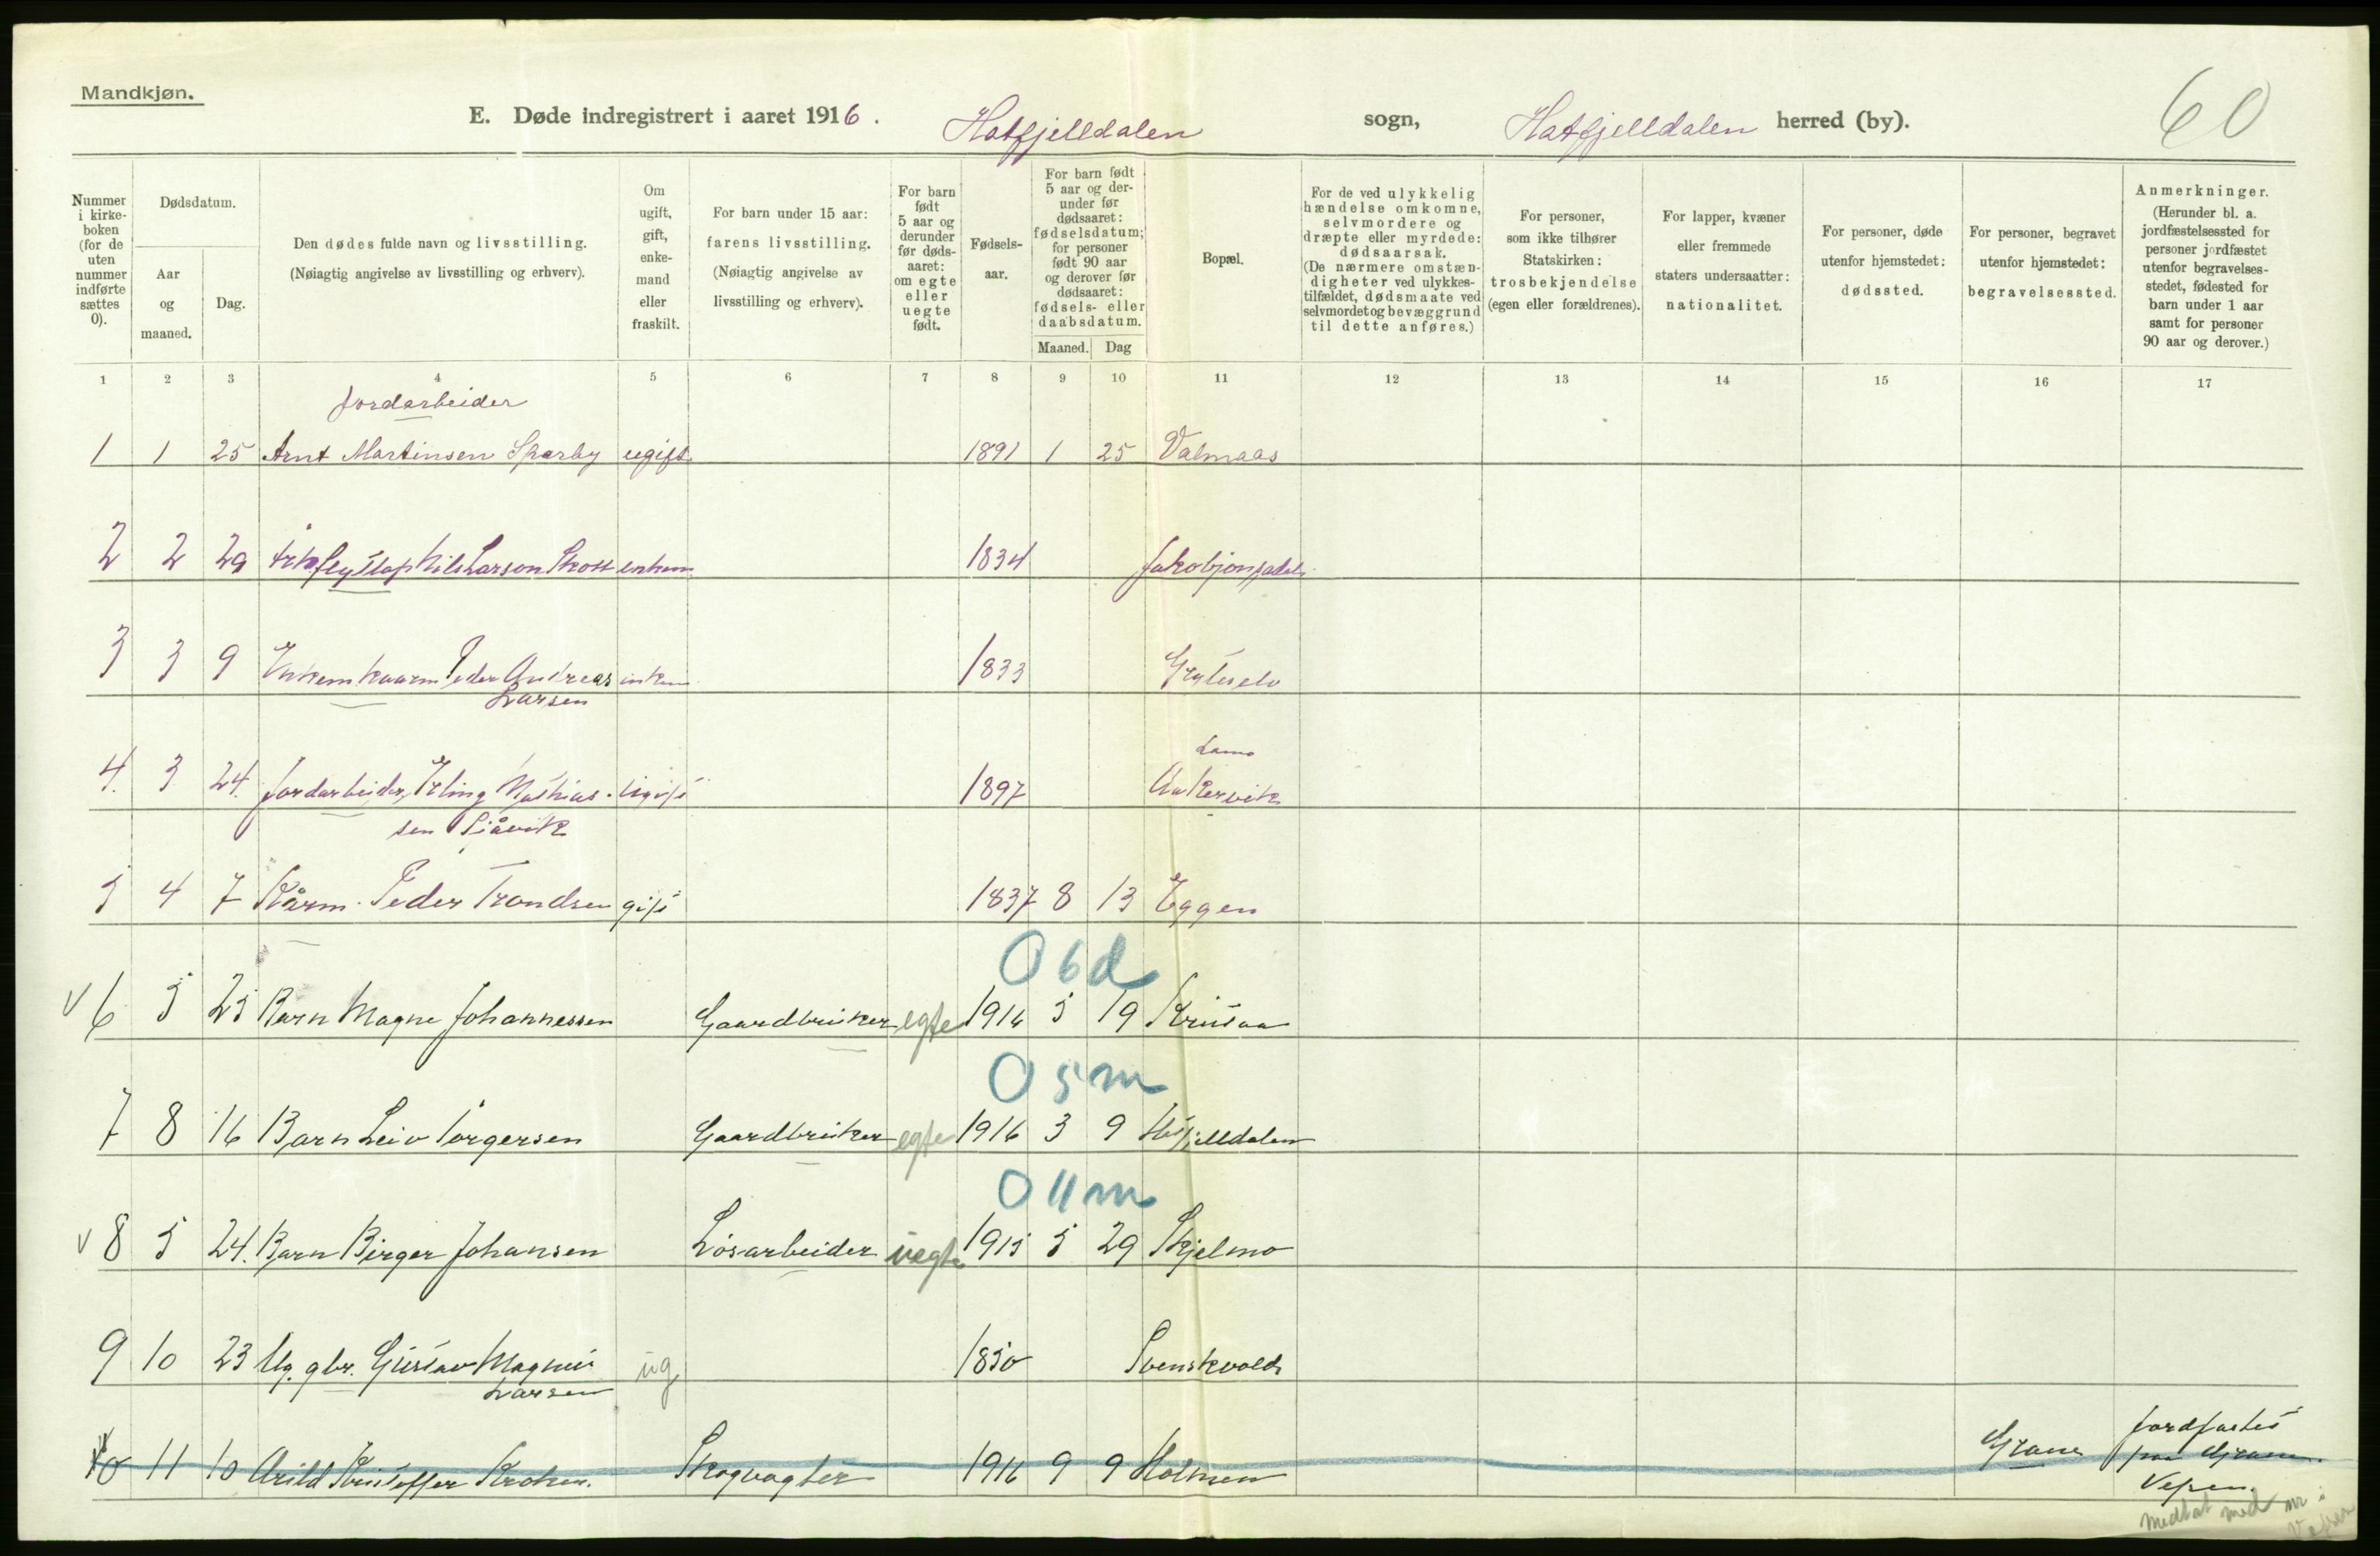 Mandkjøn.
E. Døde indregistrert i aaret 1916. Hatfjelldalen sogn, Hatfjelldalen herred (by). 60
Nummer i kirkeboken (for de uten nummer indførte sættes 0).
Dødsdatum.
Aar og maaned.
Dag.
Den dødes fulde navn og livsstilling.
(Nøiagtig angivelse av livsstilling og erhverv).
Om ugift, gift, enkemand eller fraskilt.
For barn under 15 aar:
farens livsstilling.
(Nøiagtig angivelse av livsstilling og erhverv).
For barn født 5 aar og derunder før dødsaaret: om egte eller uegte født.
Fødselsaar.
For barn født 5 aar og derunder før dødsaaret: fødselsdatum; for personer født 90 aar og derover før dødsaaret: fødsels- eller daabsdatum.
Maaned. Dag
Bopæl.
For de ved ulykkelig hændelse omkomne, selvmordere og dræpte eller myrdede: dødsaarsak.
(De nærmere omstændigheter ved ulykkestilfældet, dødsmaate ved selvmordet og bevæggrund til dette anføres.)
For personer, som ikke tilhører Statskirken: trosbekjendelse (egen eller forældrenes).
For lapper, kvæner eller fremmede staters undersaatter: nationalitet.
For personer, døde utenfor hjemstedet: dødssted.
For personer, begravet utenfor hjemstedet: begravelsessted.
Anmerkninger.
(Herunder bl. a. jordfæstelsessted for personer jordfæstet utenfor begravelsesstedet, fødested for barn under 1 aar samt for personer 90 aar og derover.)
1 2 3 4 5 6 7 8 9 10 11 12 13 14 15 16 17
Jordarbeider
1 1 25 Arnt Martinsen Sparby ugift 1891 1 25 Valmaas
2 2 29 Nils Larson enkem 1834
3 3 9 Enkem kaarm Peder Andreas enkem 1833
Larsen
Lamo
4. 3 24. Jordarbeider, Erling Mathias- ugift 1897 Aakervik
sen
5 4 7 Kårm. Peder Trondsen gift 1837 8 13 Eggen
0 6 d
V 6 5 25 Barn Magne Johannessen Gaardbruker egte 1916 5 19
0 5 m
7 8 16 Barn Leiv Torgersen Gaardbruker egte 1916 3 9 Hatfjelldalen
0 11 m
V 8 5 24. Barn Birger Johansen Løsarbeider uegte 1915 5 29 Skjelmo
9 10 23 Ug. gbr. Gustav Magnus ug 1850 Svenskvold
Larsen
10 11 10 Arild Kristoffer Skogvagter 1916 9 9 Holmen Grane Jordfæstet
paa Grane
Vefsen.
Medtat med nr i
Vefsen